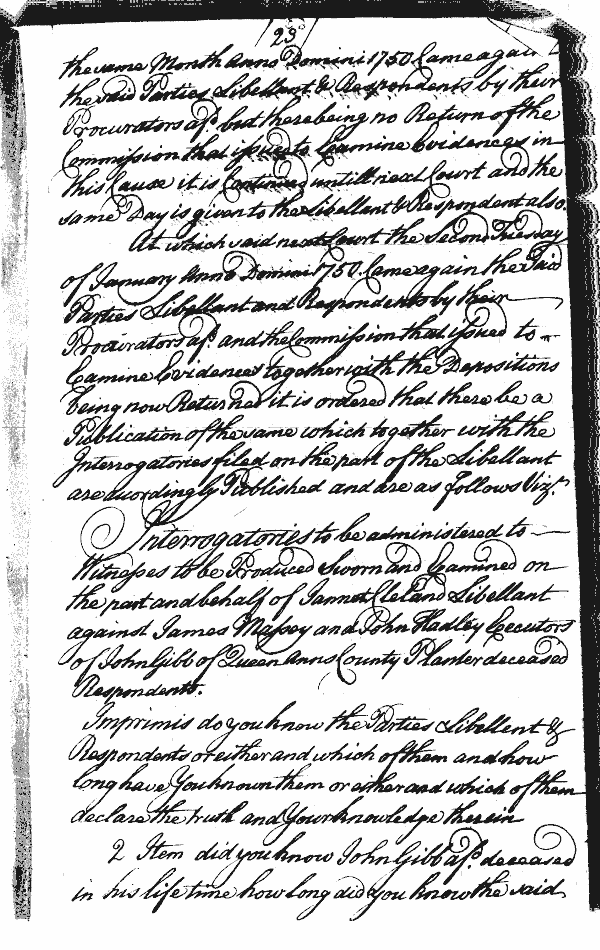 23
the same Month Anno Domini 1750 Came again
the said Parties Libellent & Respondents by their
Procurators afd. but there being no Return of the
Commission that issued to Examine Evidences in
this Cause it is Continued untill next Court and the
same Day is given to the Libellant & Respondent also.
At which said next Court the Second Tuesday
of January Anno Domini 1750 Came again the Said
Parties Libellant and Respondents by their
Procurators afd. and the Commission that issued to
Examine Evidences together with the Depositions
being now Returned it is ordered that there be a
Publication of the same which together with the
Interrogatories filed on the part of the Libellant
are accordingly Published and are as follows Vizt.
Interrogatories to be administered to
Witnesses to be Produced Sworn and Examined on
the part and behalf of Jannot Cleland Libellant
against James Massey and John Hadley Executors
of John Gibb of Queen Anns County Planter deceased
Respondents.
Imprimis do you know the Parties Libellent &
Respondents or either and which of them and how
long have You known them or either and which of them
declare the truth and Your knowledge therein
2 Item did you know John Gibb afd. deceased
in his life time how long did you know the said